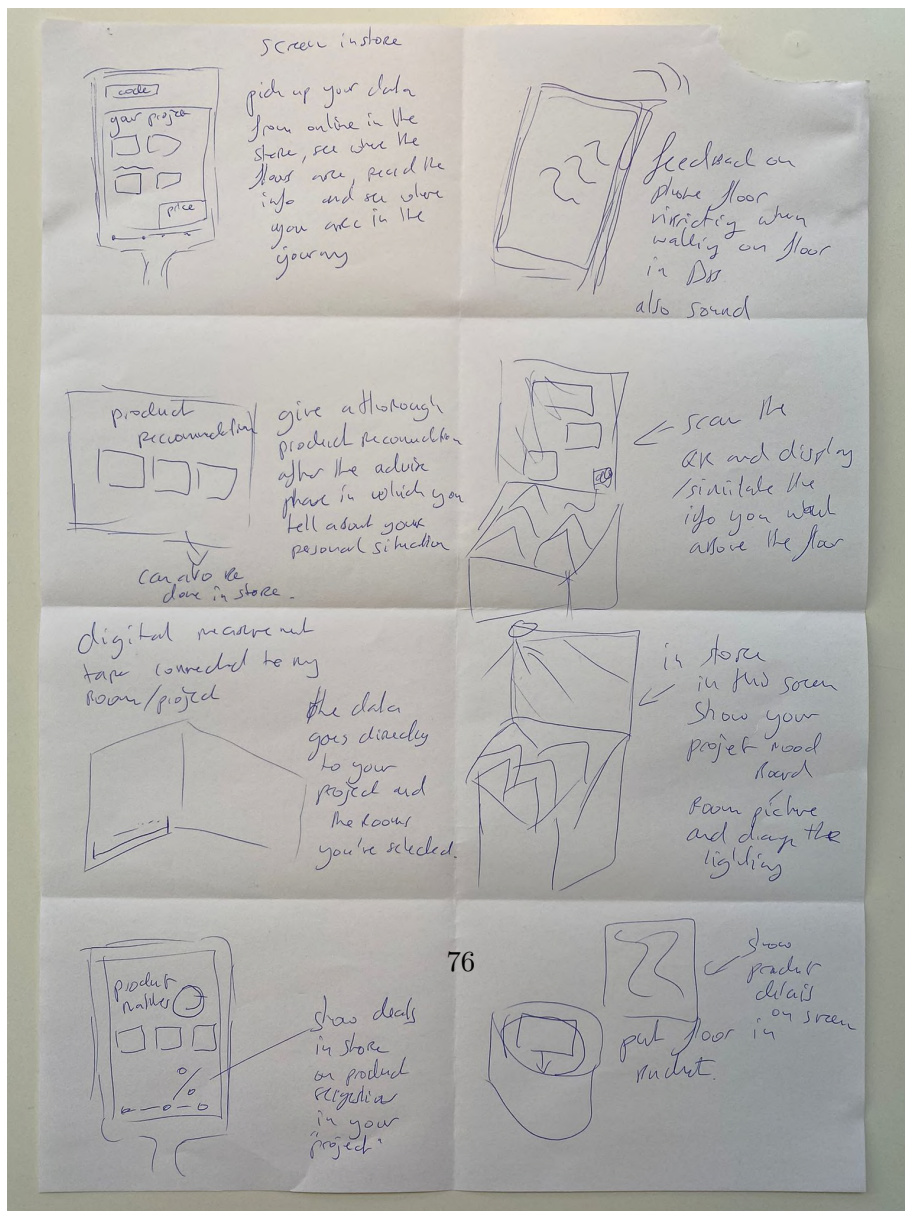 screen instore
code
your project
price
pick up your data
from online in the
store, see where the
floors are, read the
info and see where
you are in the
feedback on
phone floor
when
walking on floor
in
also sound
product
give a thorough
product
after the advise
phase in which you
tell about your
personal situation
can also be
done in store.
scan the
QR and display
/simulate the
info you want
above the floor
digital
tape connected to my
Room/project
the data
goes directly
to your
project and
the Rooms
you've selected.
in store
in this screen
Show your
projet mood
Board
Room picture
and change the
lighting
product
76
show deals
in store
on product
in your
"project"
show
product
details
on screen
put floor in
bucket.